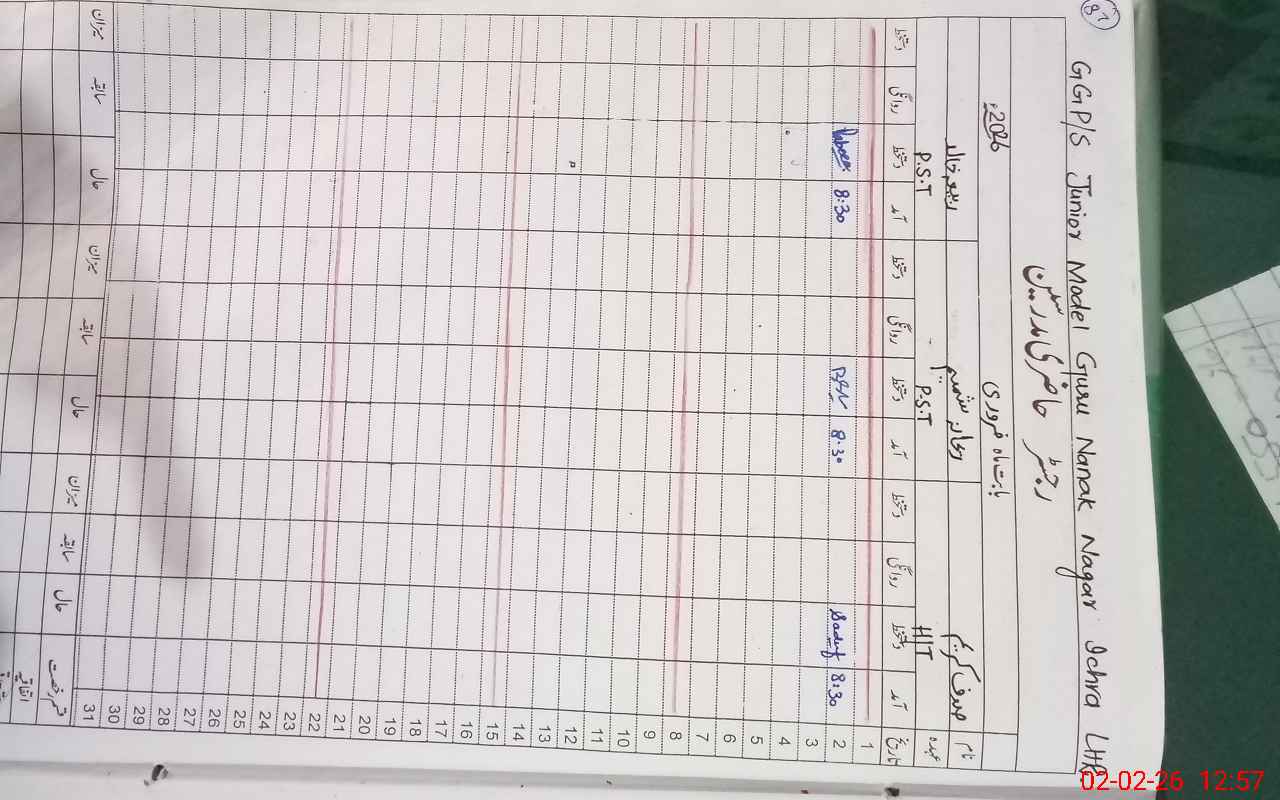 87
GGP/S Junior Model Guru Nanak Nagar Ichra LHR
رجسٹر حاضری مدرسین
بابت ماہ فروری 2026ء
نام صدف کریم ریحانہ شمیم ربیعہ خالد
عہدہ H/T P.S.T P.S.T
تاریخ آمد دستخط روانگی دستخط آمد دستخط روانگی دستخط آمد دستخط روانگی دستخط
1
2 8:30 Sadaf 8:30 8:30
3
4
5
6
7
8
9
10
11
12
13
14
15
16
17
18
19
20
21
22
23
24
25
26
27
28
29
30
31
قسم رخصت حال سابقہ میزان حال سابقہ میزان حال سابقہ میزان
اتفاقیہ
02-02-26 12:57